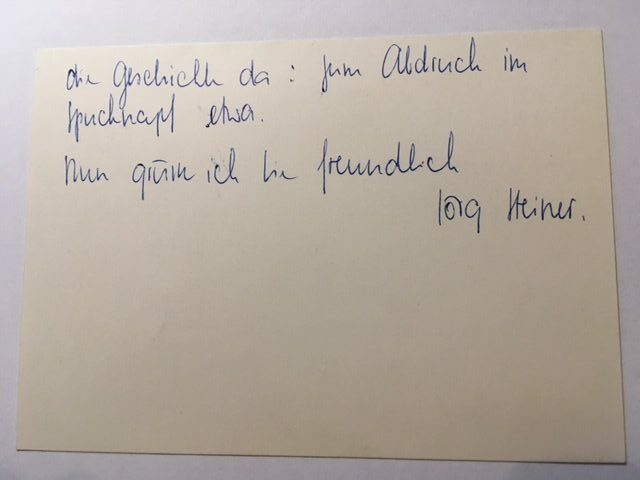 die Geschichte da: zum Abdruck im
Spucknapf etwa.
Nun grüsse ich Sie freundlich
Jörg Steiner.